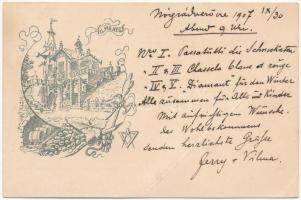 Nógrádverőce 1907 IX/30
Abend 9 Uhr.
No I. Passatutti die Schmeckaten
" II & III Chassela blanc et rouge
" IV & V. Diamant für den Winter
Alle zusammen für Alte und Kinder
Mit aufrichtigen Wünschen
des Wohlbekommens
senden herzlichste Grüße
Jerry & Vilma.